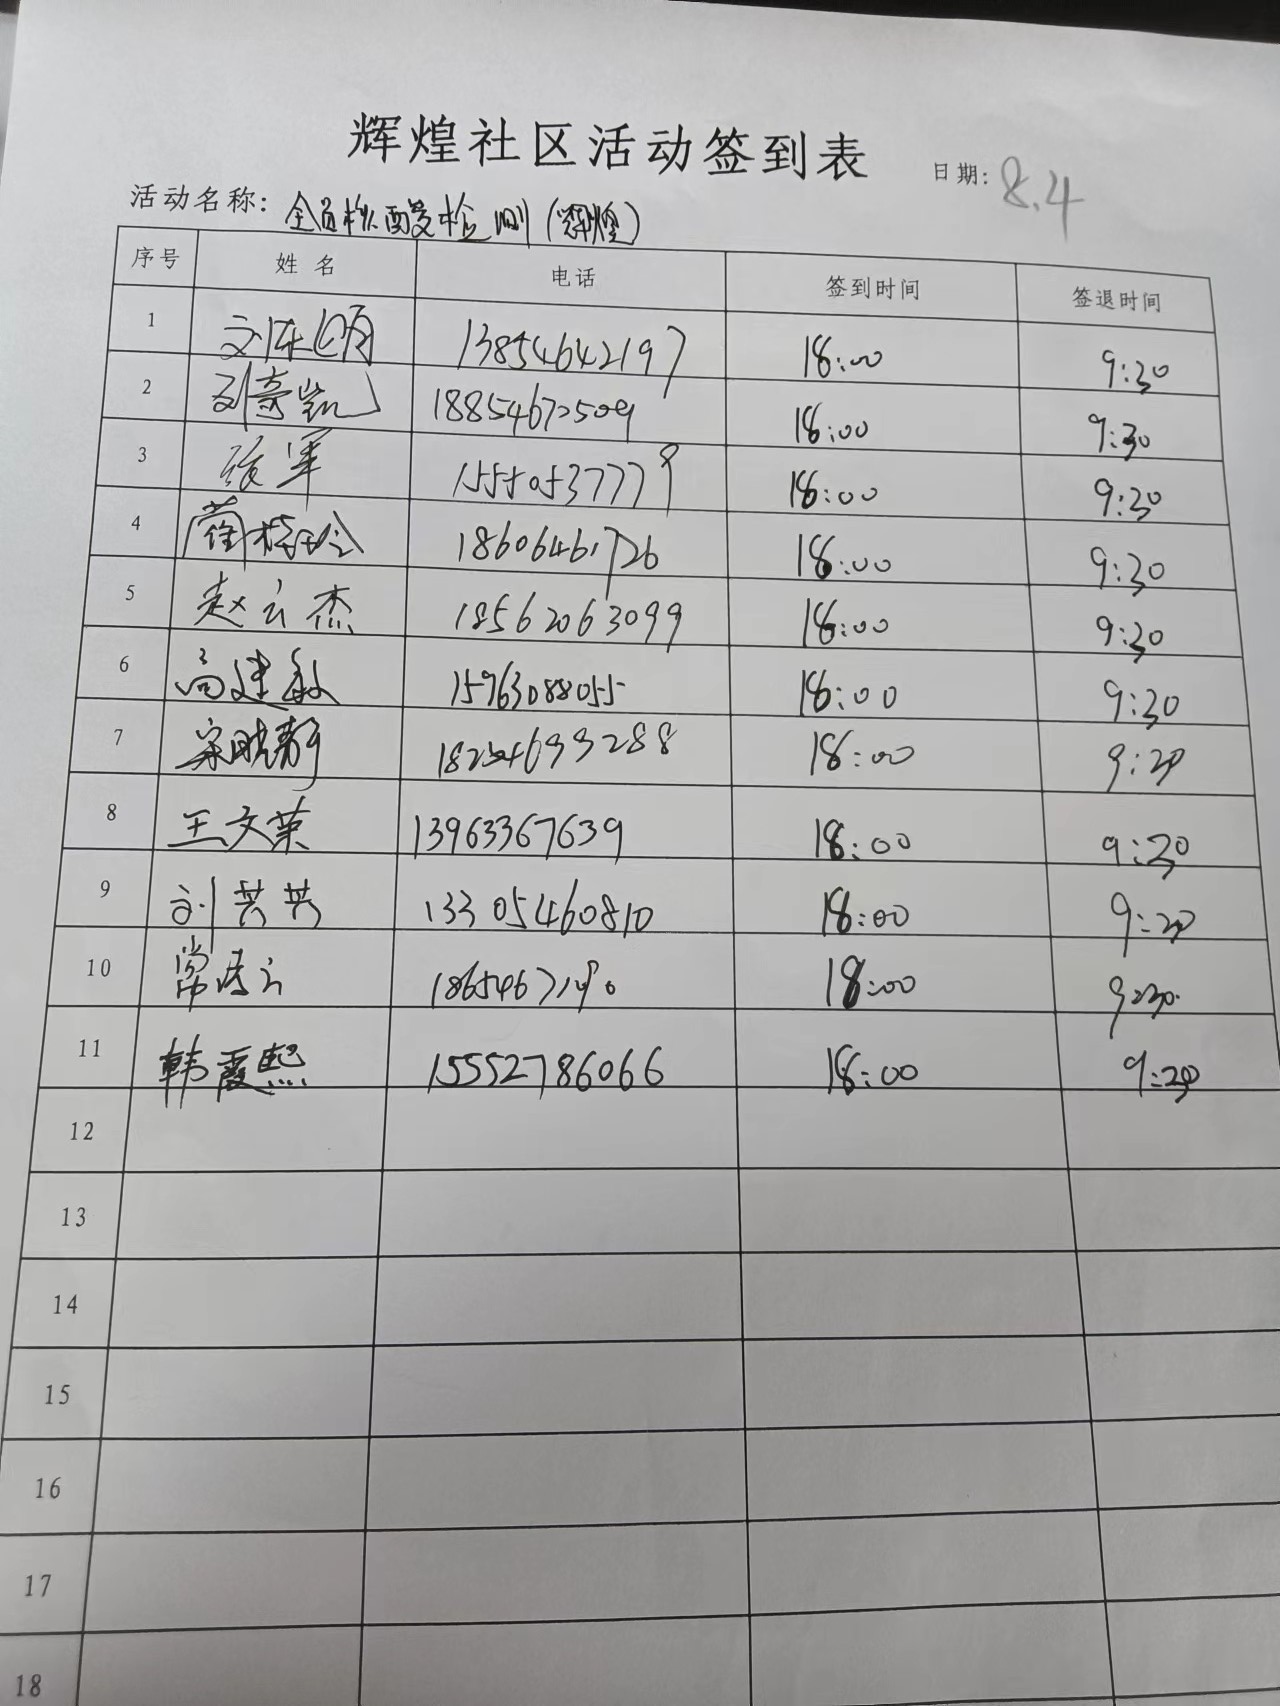 辉煌社区活动签到表
日期: 8.4
活动名称: 全员核酸检测(辉煌)
序号 姓名 电话 签到时间 签退时间
1 13854642197 18:00 9:30
2 刘奇凯 18854672509 18:00 9:30
3 张军 15550537779 18:00 9:30
4 18606461726 18:00 9:30
5 赵云杰 18562063099 18:00 9:30
6 高建敏 15963088055 18:00 9:30
7 宋晓静 18:00
8 王文荣 13963367639 18:00 9:30
9 刘共共 13305460810 18:00
10 常 18:00 9:30
11 韩霞熙 15552786066 18:00
12
13
14
15
16
17
18